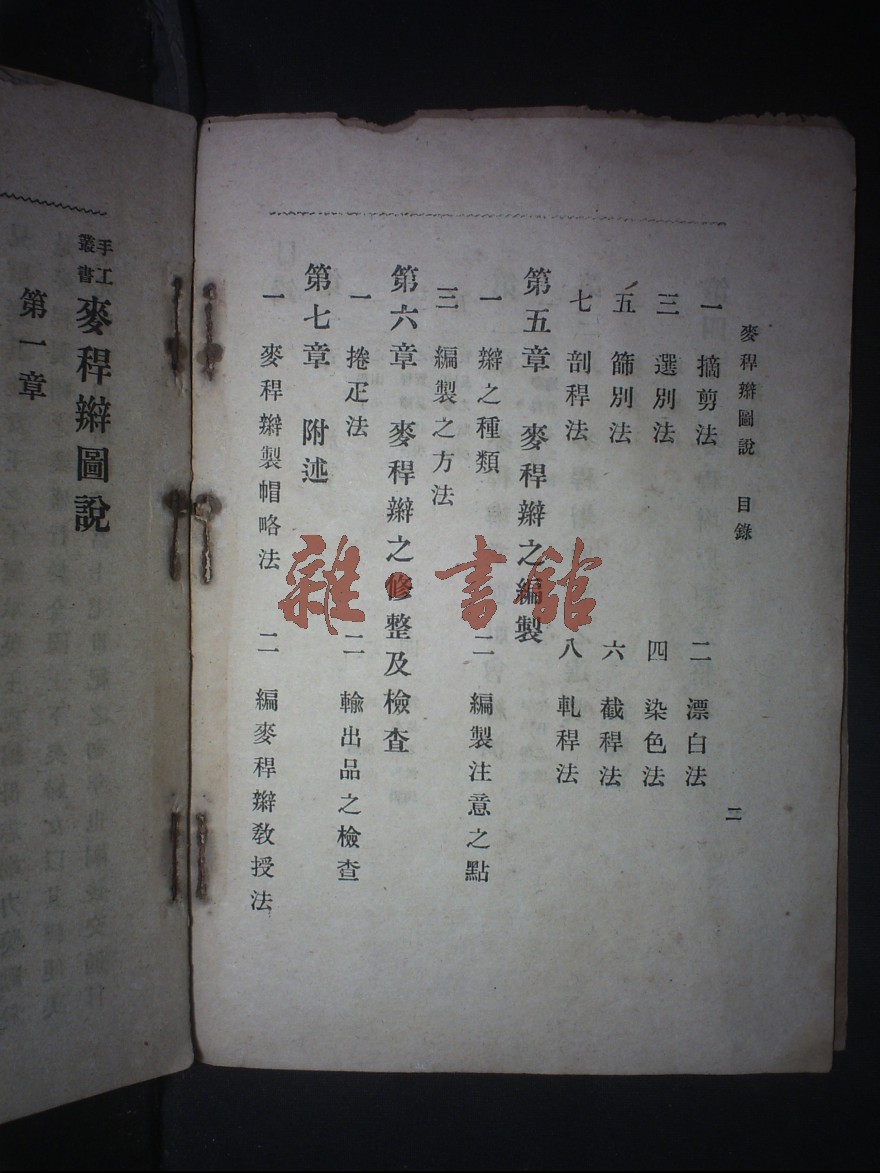 麥稈辮圖說　目錄
二
一　摘剪法　二　漂白法
三　選別法　四　染色法
五　篩別法　六　截稈法
七　剖稈法　八　軋稈法
第五章　麥稈辮之編製
一　辮之種類　二　編製注意之點
三　編製之方法
第六章　麥稈辮之修整及檢查
一　捲疋法　二　輸出品之檢查
第七章　附述
一　麥稈辮製帽略法　二　編麥稈辮教授法
手工叢書　麥稈辮圖說
第一章
雜書館